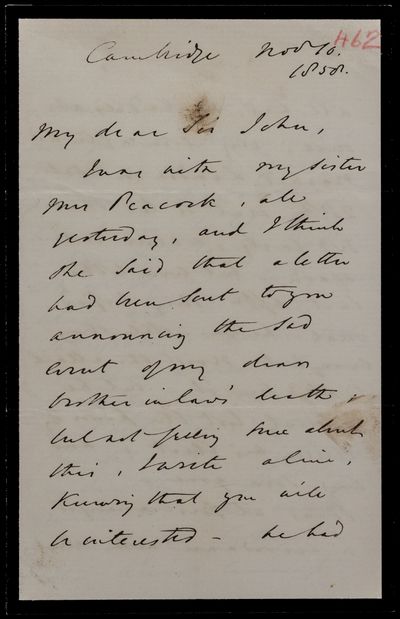 462
Cambridge Nov 10.
1858.
My dear Sir John,
I was with my sister
Mrs Peacock, all
yesterday, and I think
she said that a letter
had been sent to you
announcing the sad
event of my dear
brother in law's death,
but not feeling sure about
this, I write a line,
knowing that you will
be interested – he had